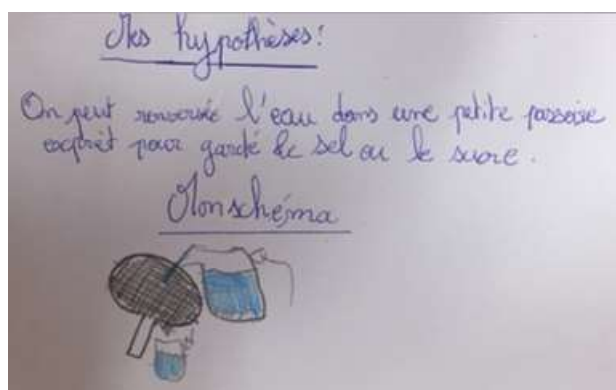 Mes hypothèses:
On peut renversée l'eau dans une petite passoire
exprèt pour gardé le sel ou le sucre.
Mon schéma